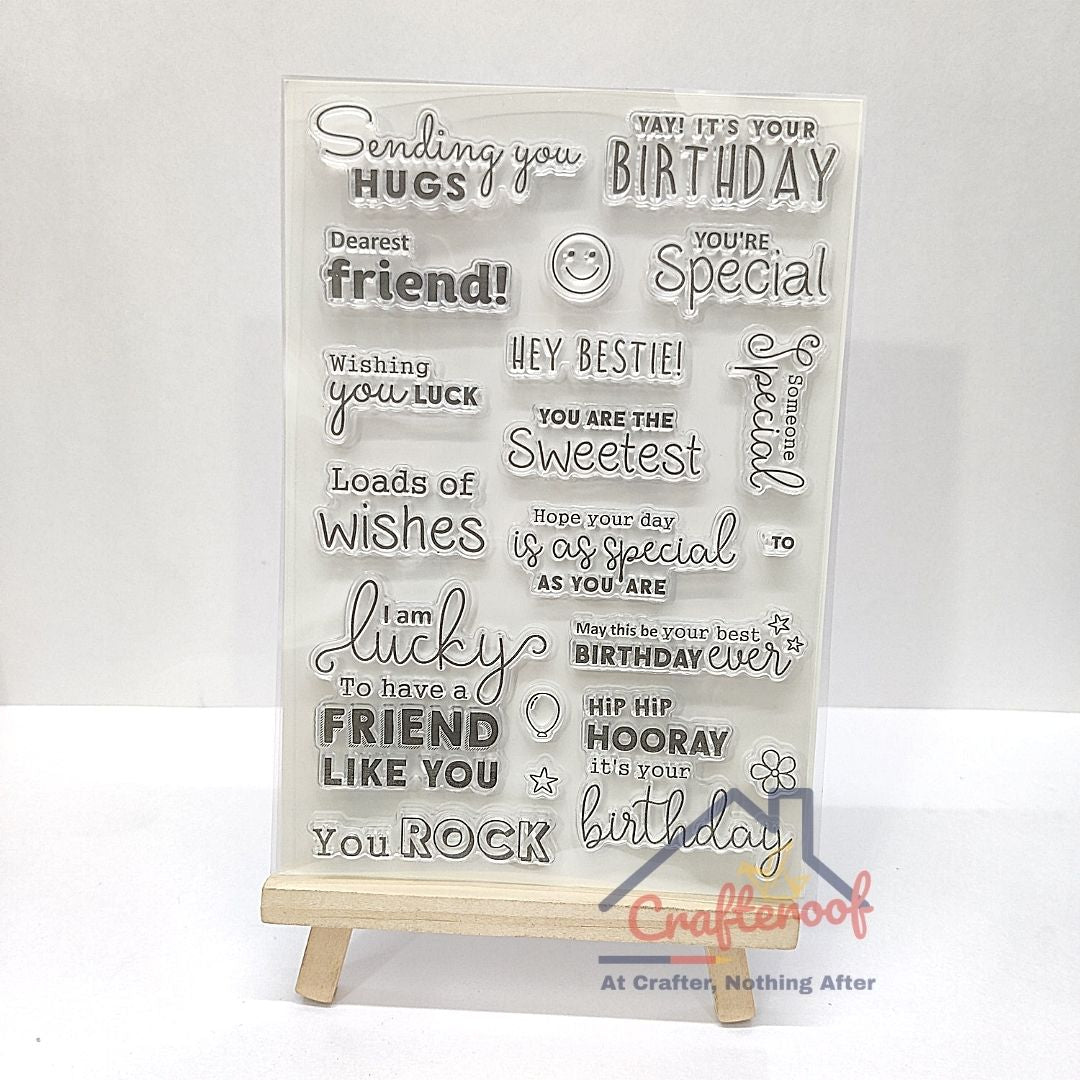 Sending you
HUGS
YAY! IT'S YOUR
BIRTHDAY
Dearest
friend!
YOU'RE
Special
Wishing
you LUCK
HEY BESTIE!
Someone
Special
YOU ARE THE
Sweetest
Loads of
wishes
Hope your day
is as special
AS YOU ARE
TO
I am
lucky
To have a
FRIEND
LIKE YOU
May this be your best
BIRTHDAY ever
HiP HiP
HOORAY
it's your
birthday
You ROCK
Crafteroof
At Crafter, Nothing After